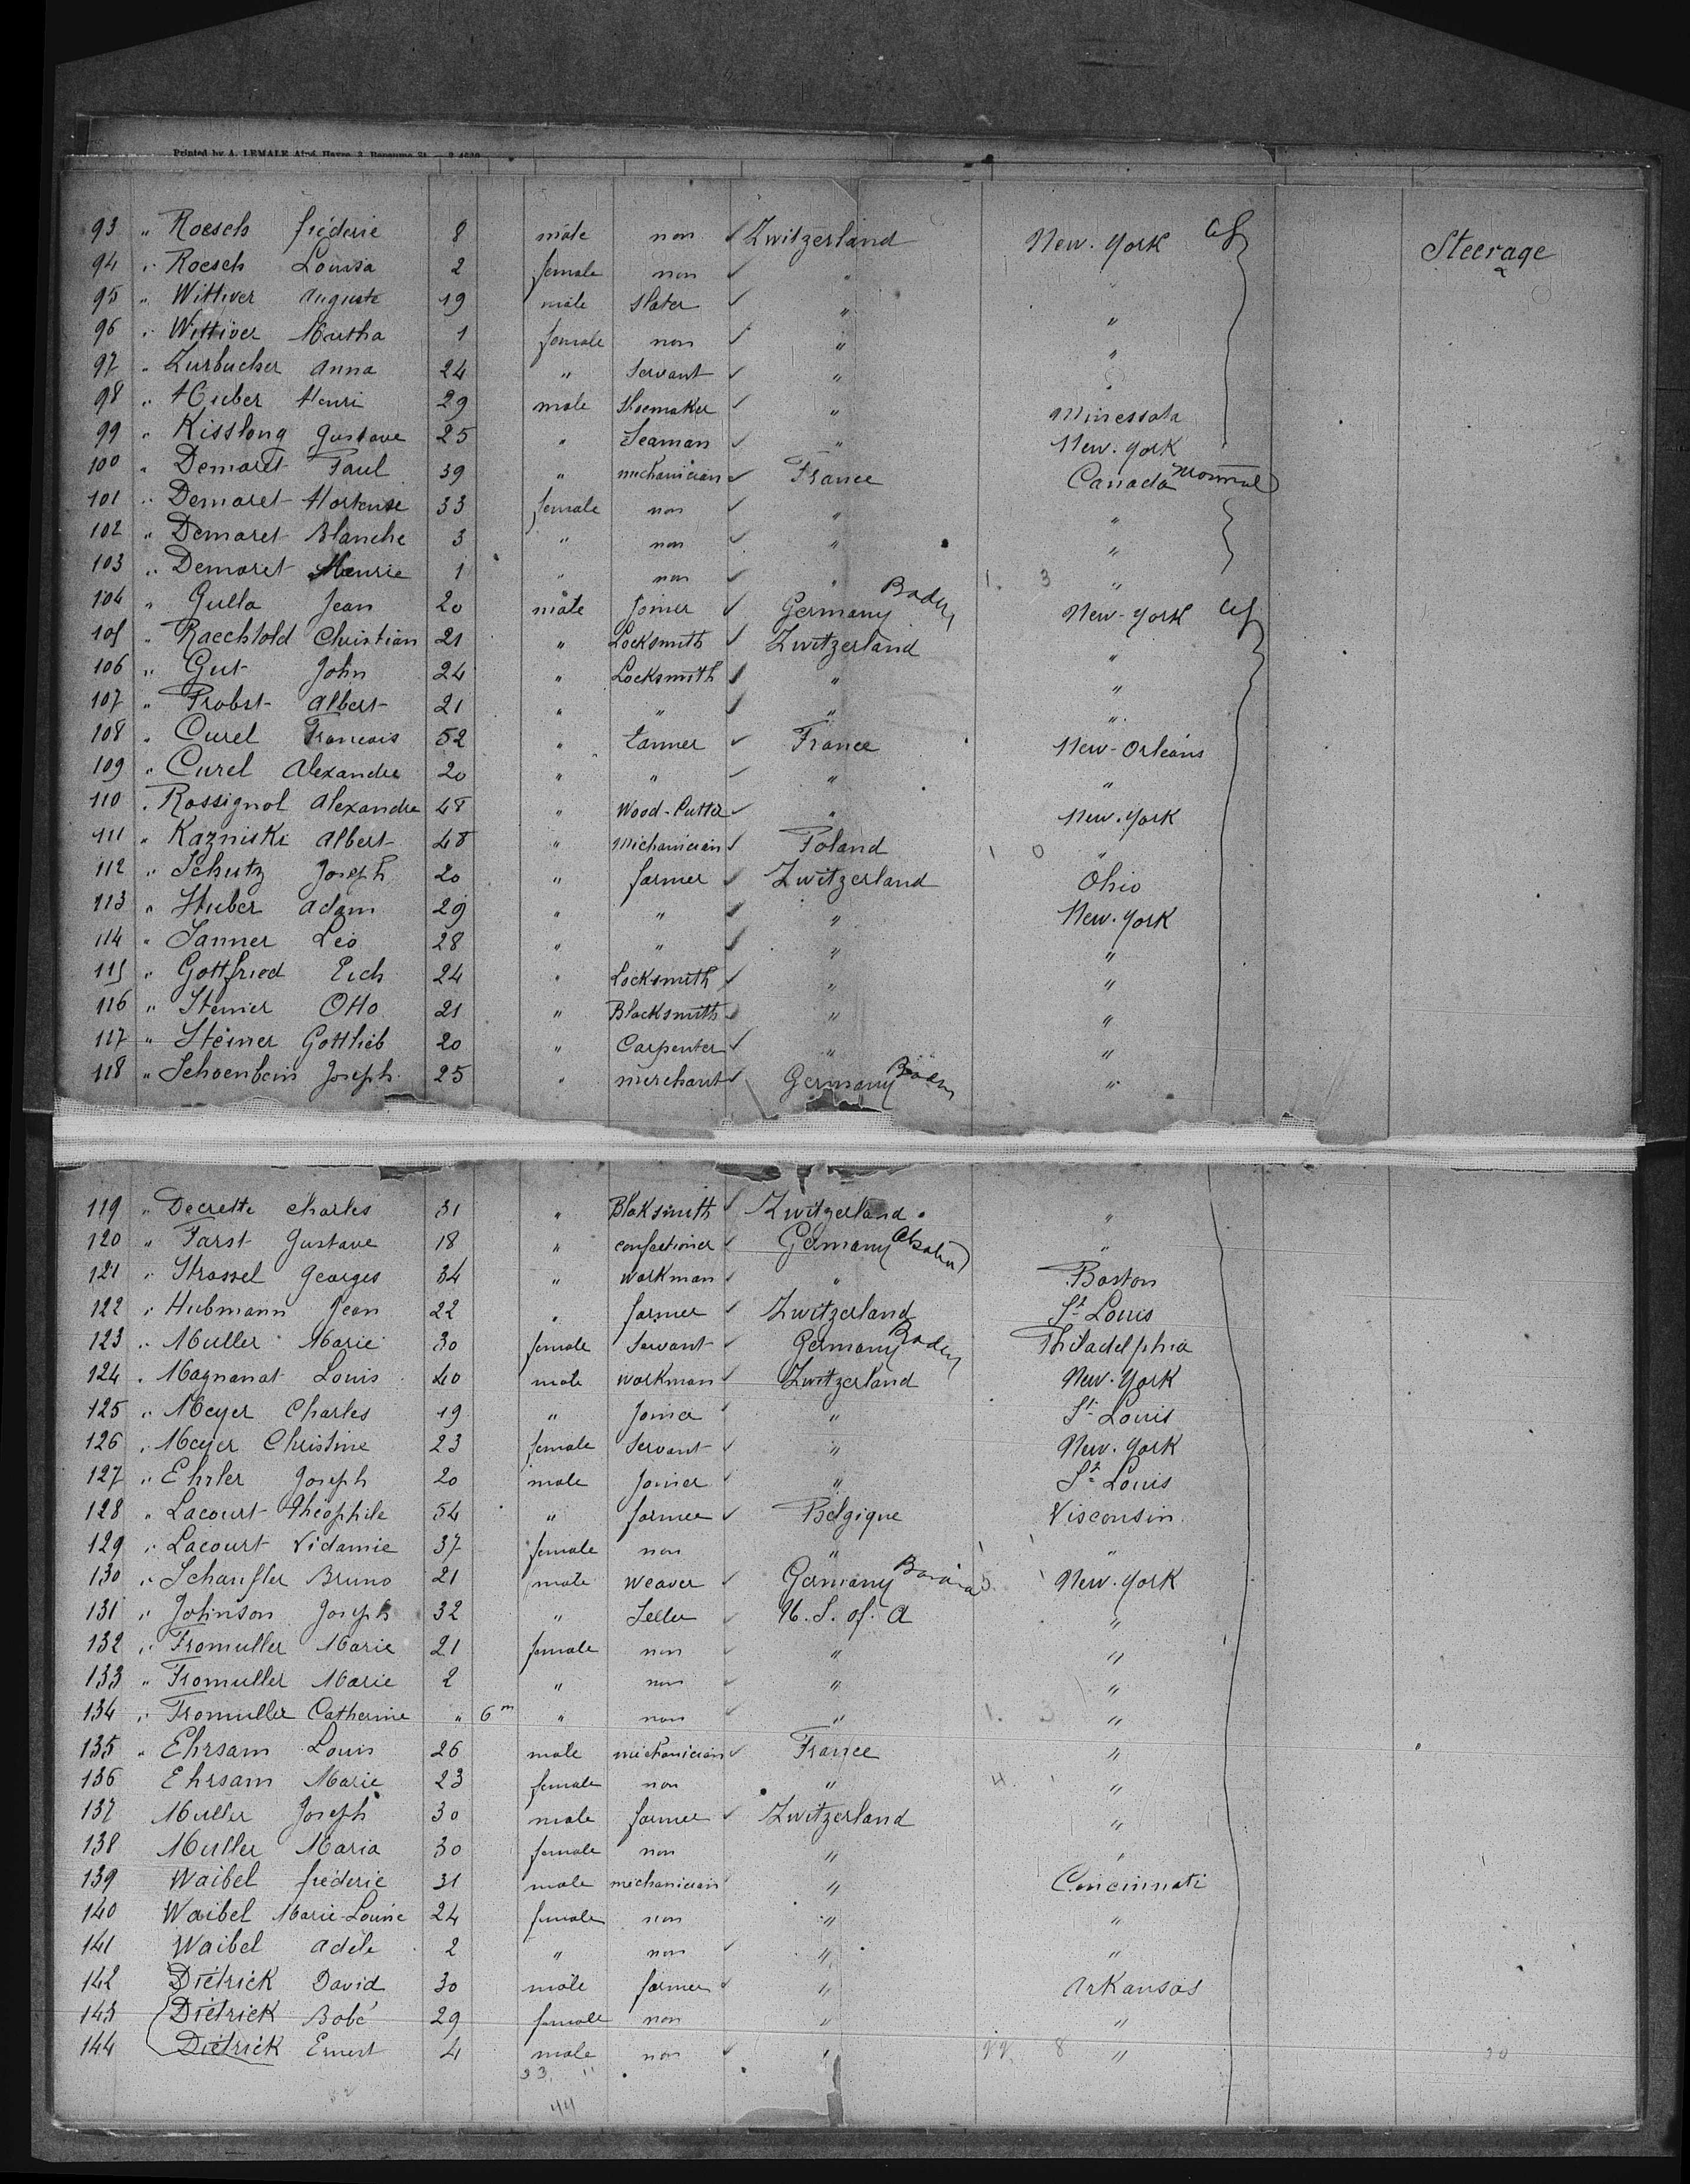 Printed by A. LEMALE Aîné, Havre, 3
93 " Roesch fréderic 8 male non ✓ Zwitzerland New-York Steerage
94 " Roesch Louisa 2 female non ✓ " "
95 " Wittwer Auguste 19 male Slater ✓ " "
96 " Wittwer Martha 1 female non ✓ " "
97 " Zurbucher Anna 24 " Servant ✓ " "
98 " Huber Henri 29 male Shoemaker ✓ " Minessota
99 " Kisslong Gustave 25 " Seaman ✓ " New-York
100 " Demaret Paul 39 " mechanician ✓ France Canada
101 " Demaret Hortense 33 female non ✓ " "
102 " Demaret Blanche 3 " non ✓ " "
103 " Demaret 1 " non ✓ " 1. 3 "
104 " Gulla Jean 20 male Joiner ✓ Germany Baden New-York
105 " Raechtold Christian 21 " Locksmith ✓ Zwitzerland "
106 " Gut John 24 " Locksmith ✓ " "
107 " Probst Albert 21 " " ✓ " "
108 " Curel Francois 52 " tanner ✓ France New-Orleans
109 " Curel Alexandre 20 " " ✓ " "
110 " Rossignol Alexandre 48 " Wood-Cutter ✓ " New-York
111 " Kazniski Albert 48 " Michanician ✓ Poland 1 0 "
112 " Schutz Joseph 20 " farmer ✓ Zwitzerland Ohio
113 " Huber Adam 29 " " ✓ " New-York
114 " Sanner Léo 28 " " ✓ " "
115 " Gottfried Eich 24 " Locksmith ✓ " "
116 " Steiner Otto 21 " Blacksmith ✓ " "
117 " Steiner Gottlieb 20 " Carpenter ✓ " "
118 " Schoenbein Joseph 25 " merchant ✓ Germany Baden "
119 " Decrette Charles 31 " Blaksmith ✓ Zwitzerland "
120 " Farst Gustave 18 " confectioner ✓ Germany "
121 " Strassel Georges 34 " workman ✓ " Boston
122 " Hubmann Jean 22 " farmer ✓ Zwitzerland St Louis
123 " Muller Marie 30 female Servant ✓ Germany Baden Philadelphia
124 " Magnanat Louis 40 male workman ✓ Zwitzerland New-York
125 " Meyer Charles 19 " Joiner ✓ " St Louis
126 " Meyer Christine 23 female Servant ✓ " New-York
127 " Ehrler Joseph 20 male Joiner ✓ " St Louis
128 " Lacourt Théophile 54 " farmer ✓ Belgique Visconsin
129 " Lacourt Vidamie 37 female non " "
130 " Schaufler Bruno 21 male weaver ✓ Germany Bavaria New-York
131 " Johnson Joseph 32 " Seller ✓ U. S. of. A "
132 " Fromuller Marie 21 female non ✓ " "
133 " Fromuller Marie 2 " non ✓ " "
134 " Fromuller Catherine " 6 m " non ✓ " 1. 3 "
135 " Ehrsam Louis 26 male mechanician ✓ France "
136 Ehrsam Marie 23 female non " "
137 Muller Joseph 30 male farmer ✓ Zwitzerland "
138 Muller Maria 30 female non " "
139 Waibel fréderic 31 male michanician " Cincinnati
140 Waibel Marie-Louise 24 female non " "
141 Waibel Adèle 2 " non ✓ " "
142 Dietrick David 30 male farmer ✓ " Arkansas
143 Dietrick Bobé 29 female non " "
144 Dietrick Ernest 4 male non ✓ " 8 "
44